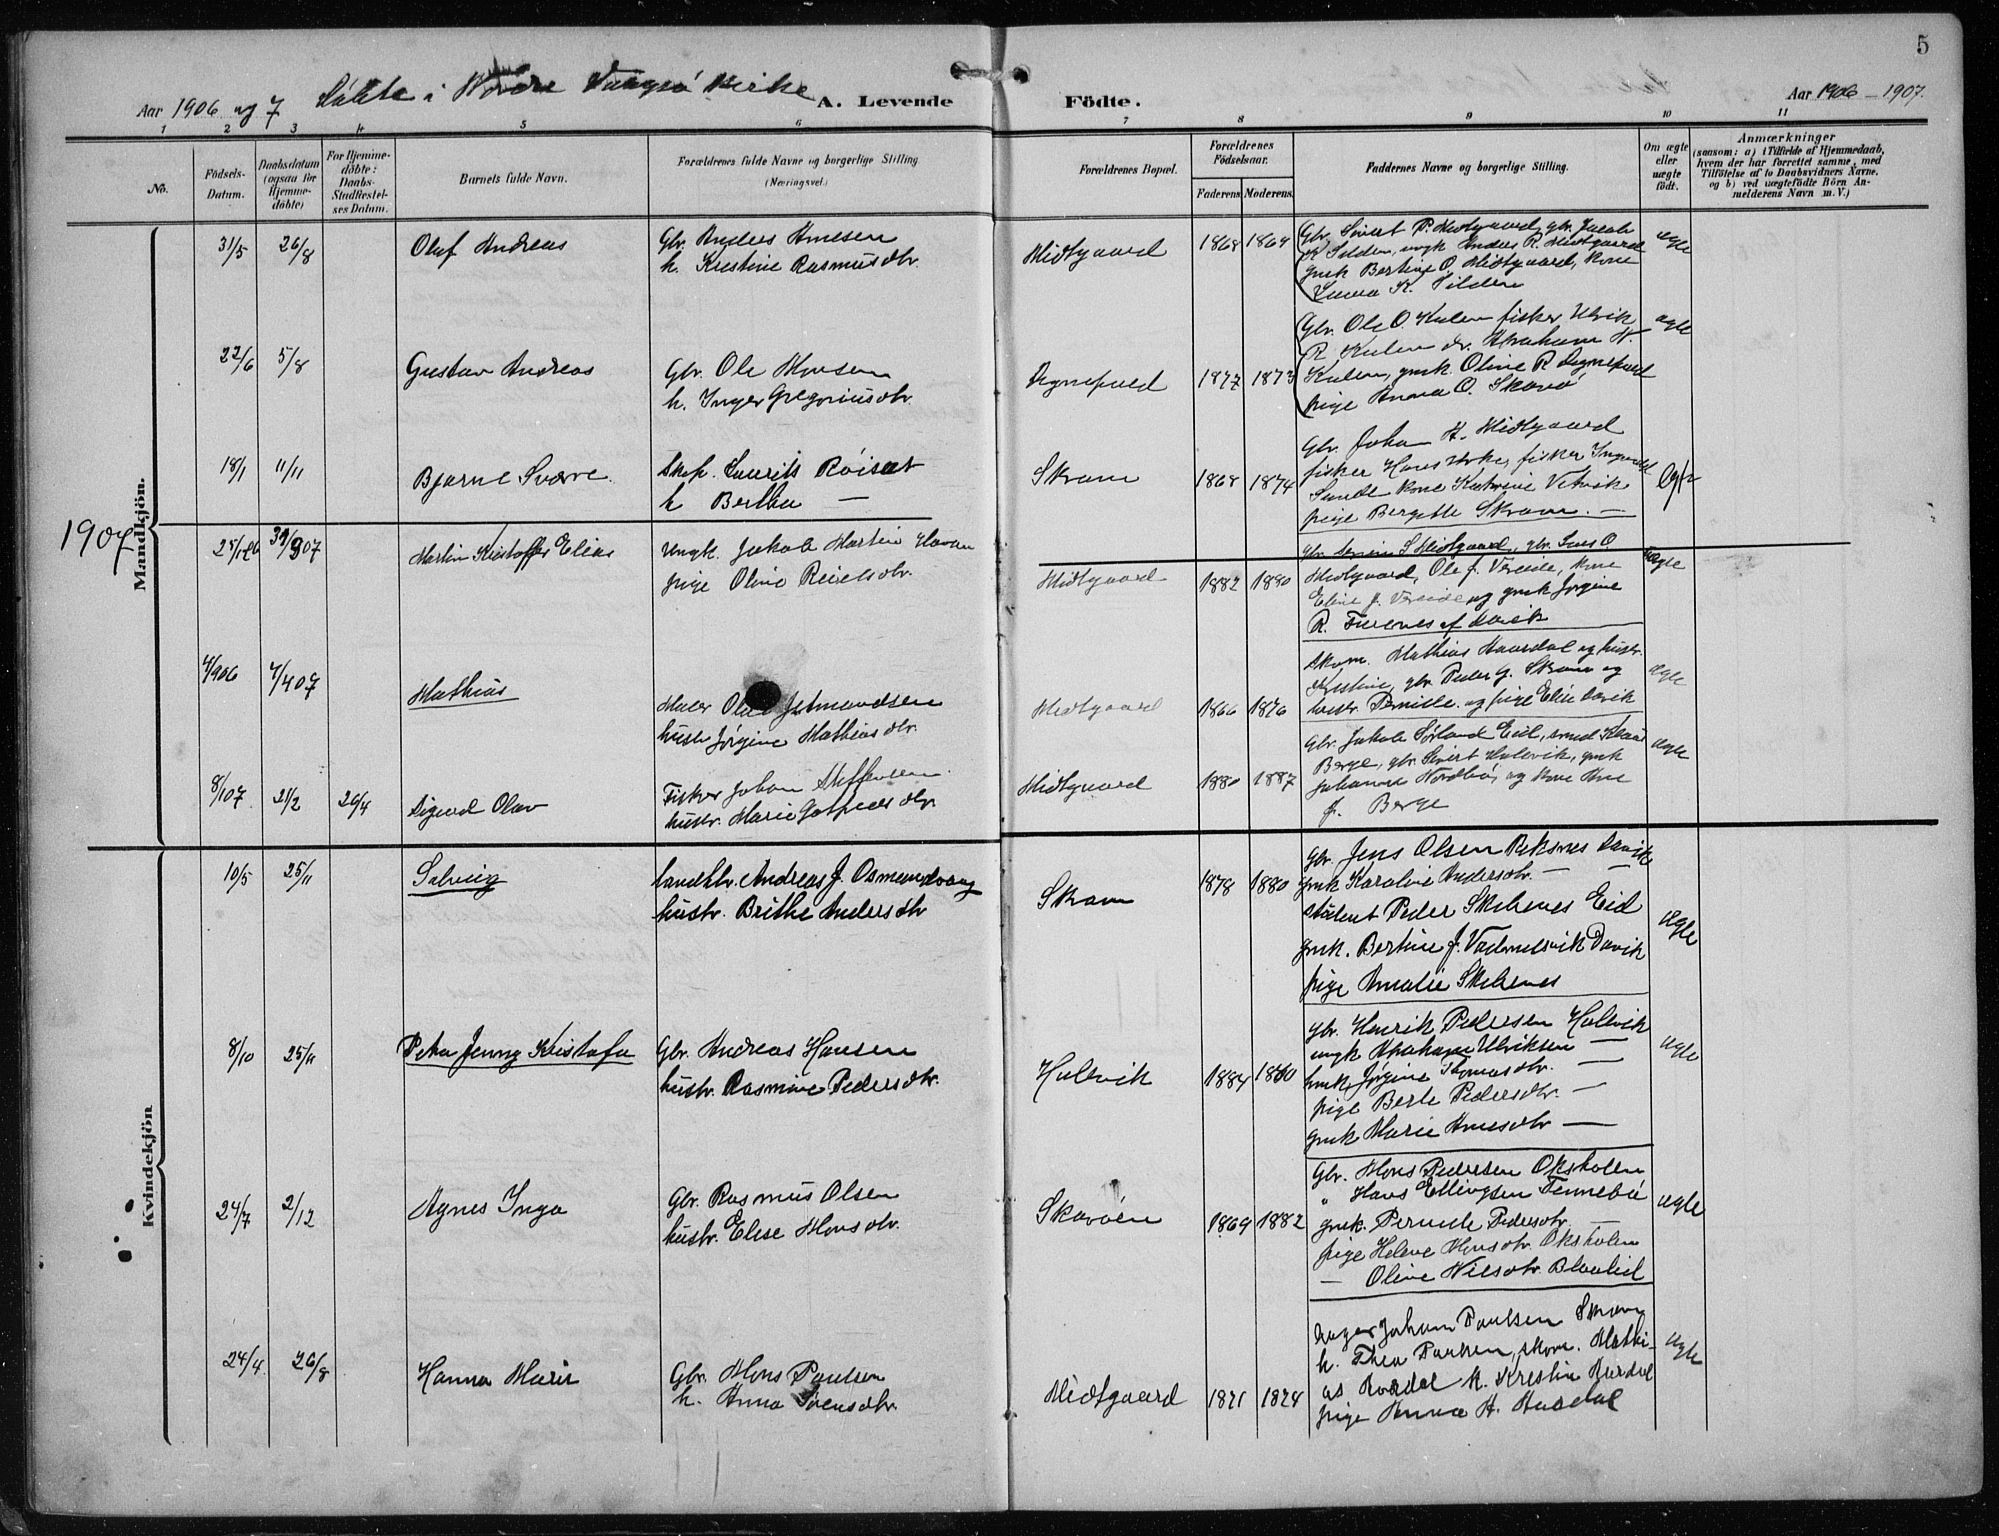 5
Aar 1906 og 7 Döbte i Nordre Vaagsö Kirke A. Levende Födte. Aar 1906-1907.
1 2 3 4 5 6 7 8 9 10 11
No.
Födsels-
Datum.
Daabsdatum
(ogsaa for
Hjemme-
döbte)
For Hjemme-
döbte:
Daabs-
Stadfæstel-
ses Datum.
Barnets fulde Navn.
Forældrenes fulde Navne og borgerlige Stilling
(Næringsvei.)
Forældrenes Bopæl.
Forældrenes
Födselsaar.
Faderens. Moderens.
Faddernes Navne og borgerlige Stilling.
Om ægte
eller
uægte
født.
Anmærkninger
(saasom: a) i Tilfælde af Hjemmedaab,
hvem der har forrettet samme, med
Tilföielse af to Daabsvidners Navne,
og b) ved uægtefödte Börn An-
melderens Navn m. V.)
Mandkjön.
31/5 26/8 Oluf Andreas
Gbr. Anders Arnesen
h. Kristine Rasmusdtr.
Midtgaard 1868 1869
Gbr. Sivert P. Midtgaard, gbr. Jacob
K. Silden, ungk Anders R. Midtgaard
gmk Bertine O. Midtgaard, kone
K. Silden
ægte
22/6 5/8 Gustav Andreas
Gbr. Ole Monsen
h. Inger Gregoriusdtr.
Degnepold 1877 1873
Gbr. Ole O. Kulen fisker Ulrik
R. Kulen dr. Abraham H.
Kulen, gmk. Oline R Degnepold
pige Anna O. Skavö
ægte
18/1 11/11 Bjarne Sverre
Skp. Laurits Röiset
h Bertha —
Skram 1868 1874
Gbr. Johan A. Midtgaard
fisker Hans, fisker Ingvald
Sunde kone Kathrine Vetvik
pige Bergette Skram. —
1907
Martin Kristoffer Elias
Ungk. Jakob Martin
pige Oline Reielsdtr.
Midtgaard 1882 1890
gbr. S Midtgaard, gbr. O.
Midtgaard, Ole J. Vereide, kone
Eline J. Vereide og gmk Jørgine
R. Furenes af Davik
uægte
4/906 7/407 Mathias
Maler Olai Jetmundsen
hustr Jørgine Mathiasdtr.
Midtgaard 1866 1876
Skom. Mathias Haardal og hustr.
Kristine, gbr. Peder J. Skram og
hustr. Pernille og pige Elie Davik
ægte
8/107 21/2 26/4 Sigurd Olav
Fisker Johan Steffensen
hustr. Marie Gotfredsdtr.
Midtgaard 1880 1887
Gbr. Jakob Sørland Eid, smed Klaus
Berge, gbr Sivert Halvik, gmk
Johanna Nordbö, og kone Ane
J. Berge
ægte
Kvindekjön
10/5 25/11 Solveig
landhlr. Andreas J. Osmundvaag
hustr. Brithe Andersdtr
Skram 1878 1880
Gbr. Jens Olsen Reksnes Davik
gmk Karoline Andersdtr. — —
student Peder Skibenes Eid
gmk. Bertine J. Davik
pige Amalie Skibenes
ægte
8/10 25/11 Petra Jenny Kristofa
Gbr. Andreas Hansen
hustr. Rasmine Pedersdtr.
Halvik 1884 1880
gbr. Henrik Pedersen Halvik
ungk Abraham Ulriksen —
hmk Jørgine Thomasdtr. —
pige Berte Pedersdtr. —
gmk Marie Arnesdtr —
ægte
24/7 2/12 Agnes Inga
Gbr. Rasmus Olsen
hustr. Elise Monsdtr.
Skavöen 1869 1882
Gbr. Mons Pedersen Oksholen
" Hans Ellingsen Tennebö
gmk. Pernille Pedersdtr. —
pige Helene Monsdtr. Oksholen
— Oline Nilsdtr. Blaalid
ægte
24/4 26/8 Hanna Marie
Gbr. Mons Paulsen
h. Anna Sørensdtr.
Midtgaard 1871 1874
Johan Paulsen Skram
h. Thea Paulsen, skom. Mathi-
as Hordal h. Kristine Hardal
pige Anna H. Haardal
ægte